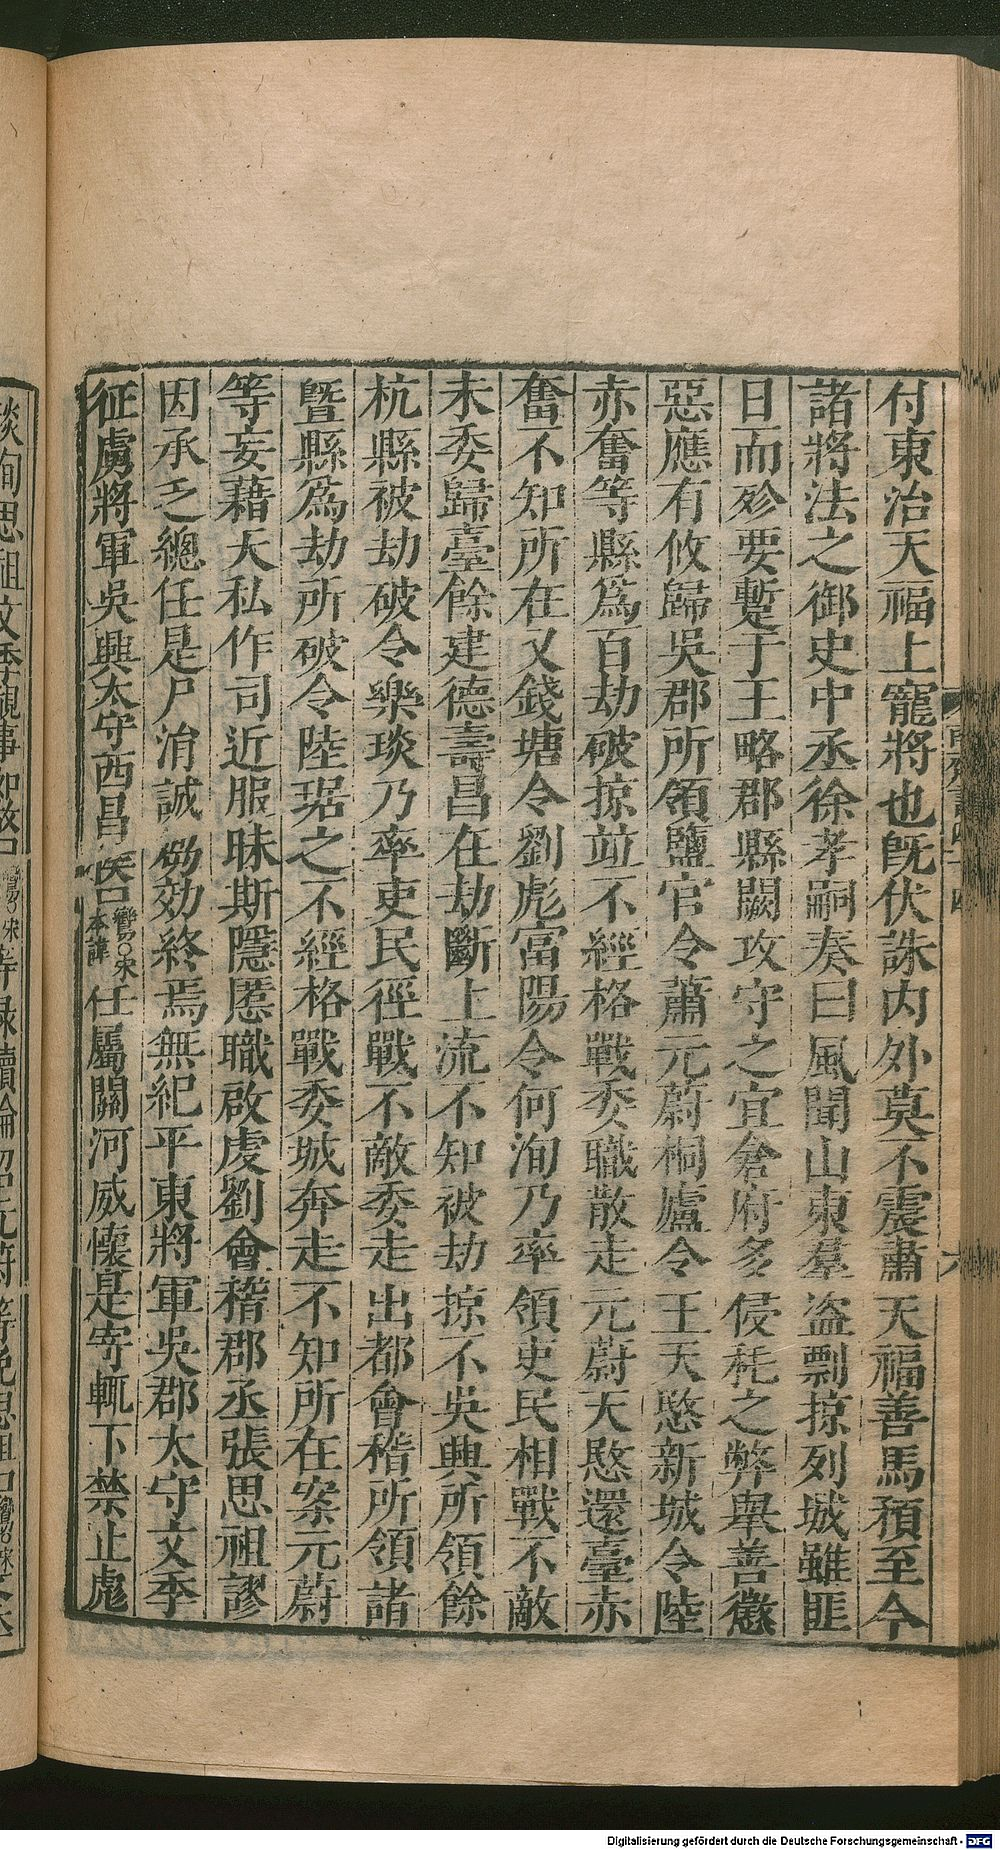 付東治天福上寵將也旣伏誅内外莫不震肅天福善馬預至今
諸將法之御史中丞徐孝嗣奏曰風聞山東羣盜剽掠列城雖匪
日而殄要蹔于王略郡縣闕攻守之宜倉府多侵秏之弊舉善懲
惡應有攸歸吳郡所領鹽官令蕭元蔚桐廬令王天愍新城令陸
赤奮等縣爲百劫破掠竝不經格戰委職散走元蔚天愍還臺赤
奮不知所在又錢塘令劉彪富陽令何洵乃率領吏民相戰不敵
未委歸臺餘建德壽昌在劫斷上流不知被劫掠不吳興所領餘
杭縣被劫破令樂琰乃率吏民徑戰不敵委走出都會稽所領諸
曁縣爲劫所破令陸琚之不經格戰委城奔走不知所在案元蔚
等妄藉天私作司近服昧斯隱慝職啟虔劉會稽郡丞張思祖謬
因承乏總任是尸涓誠劾効終焉無紀平東將軍吳郡太守文季
征虜將軍吳興太守西昌 任屬關河威懷是寄輒下禁止彪
六
Digitalisierung gefördert durch die Deutsche Forschungsgemeinschaft - DFG